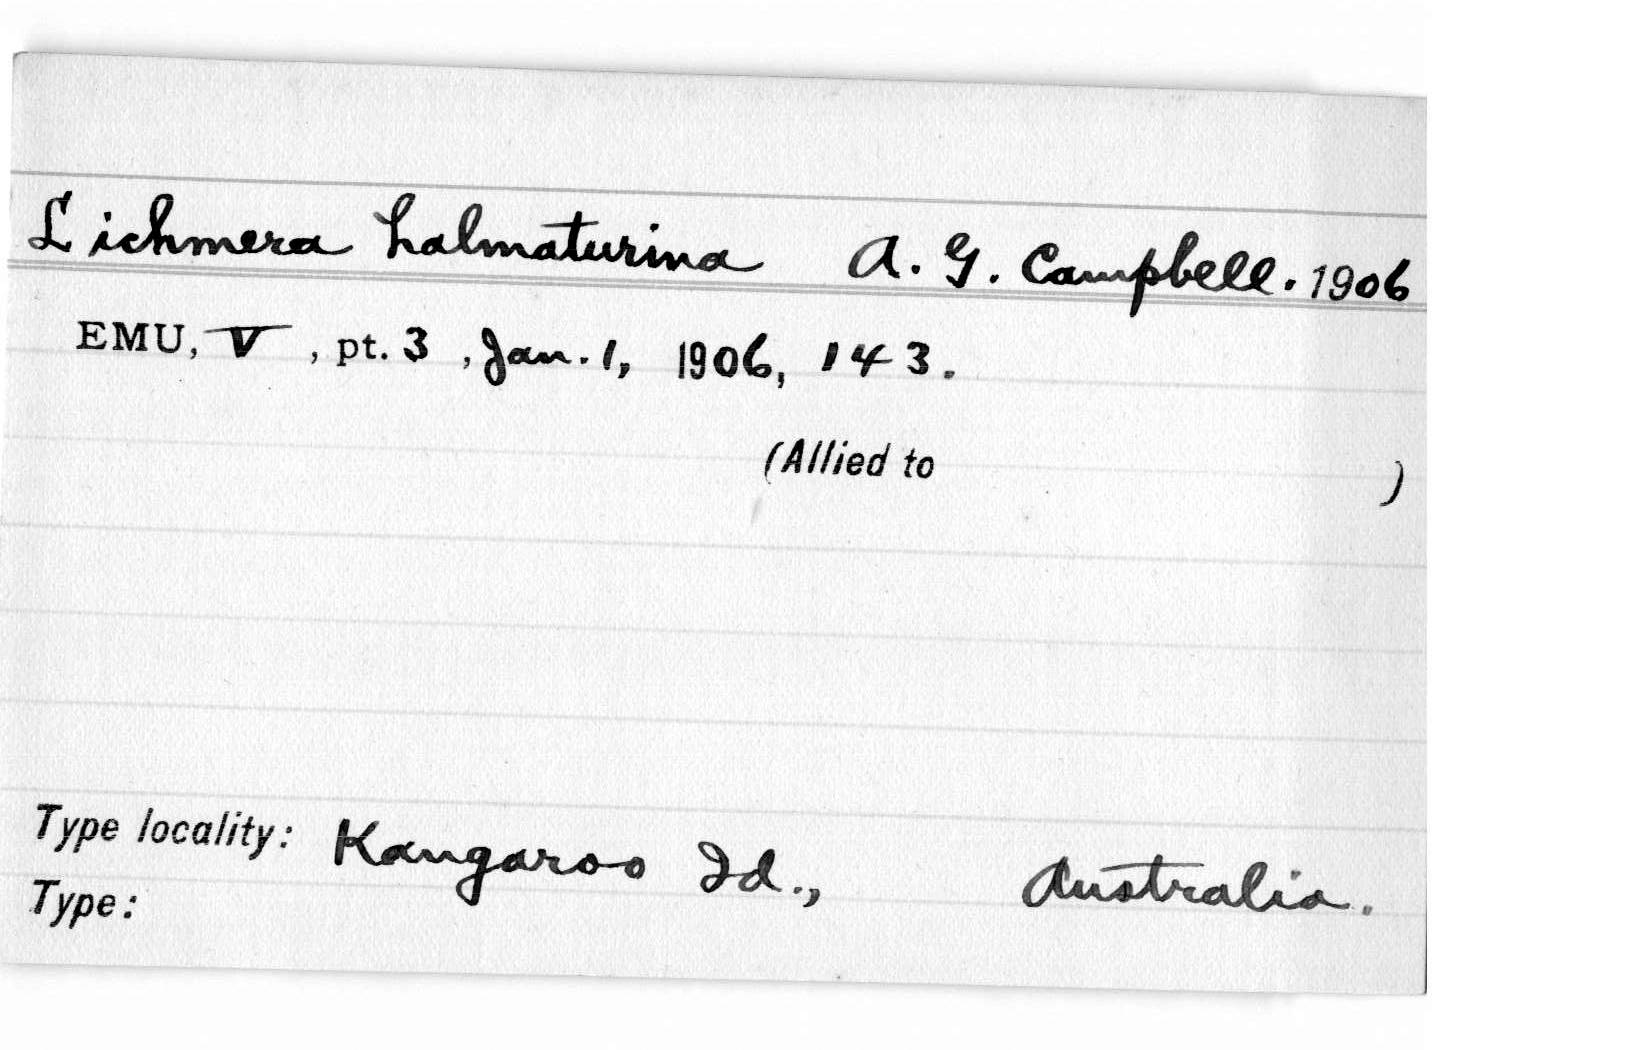 Lichmera halmaturina A. G. Campbell. 1906
EMU, V, pt. 3, Jan. 1, 1906, 143.
(Allied to )
Type locality: Kangaroo Id., Australia.
Type: